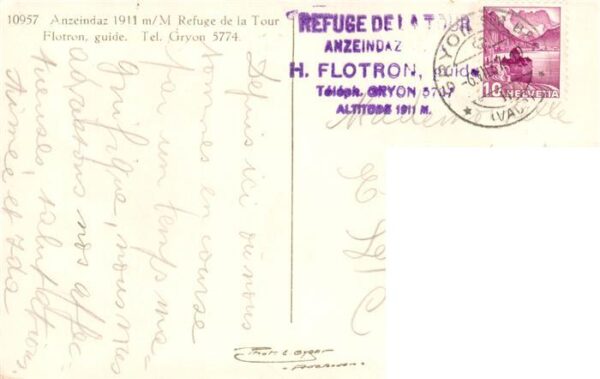 10957 Anzeindaz 1911 m/M Refuge de la Tour
Flotron, guide. Tel. Gryon 5774.
REFUGE DE LA TOUR
ANZEINDAZ
H. FLOTRON, guide
Téléph. GRYON 57
ALTITUDE 1911 M.
GRYON
(VAUD)
10 HELVETIA
Mademoiselle
Depuis ici où nous
sommes en course
par un temps ma-
gnifique, nous vous
adressons nos affec-
tueuses salutations.
Aimée et Ida
Phot. E. Gyger